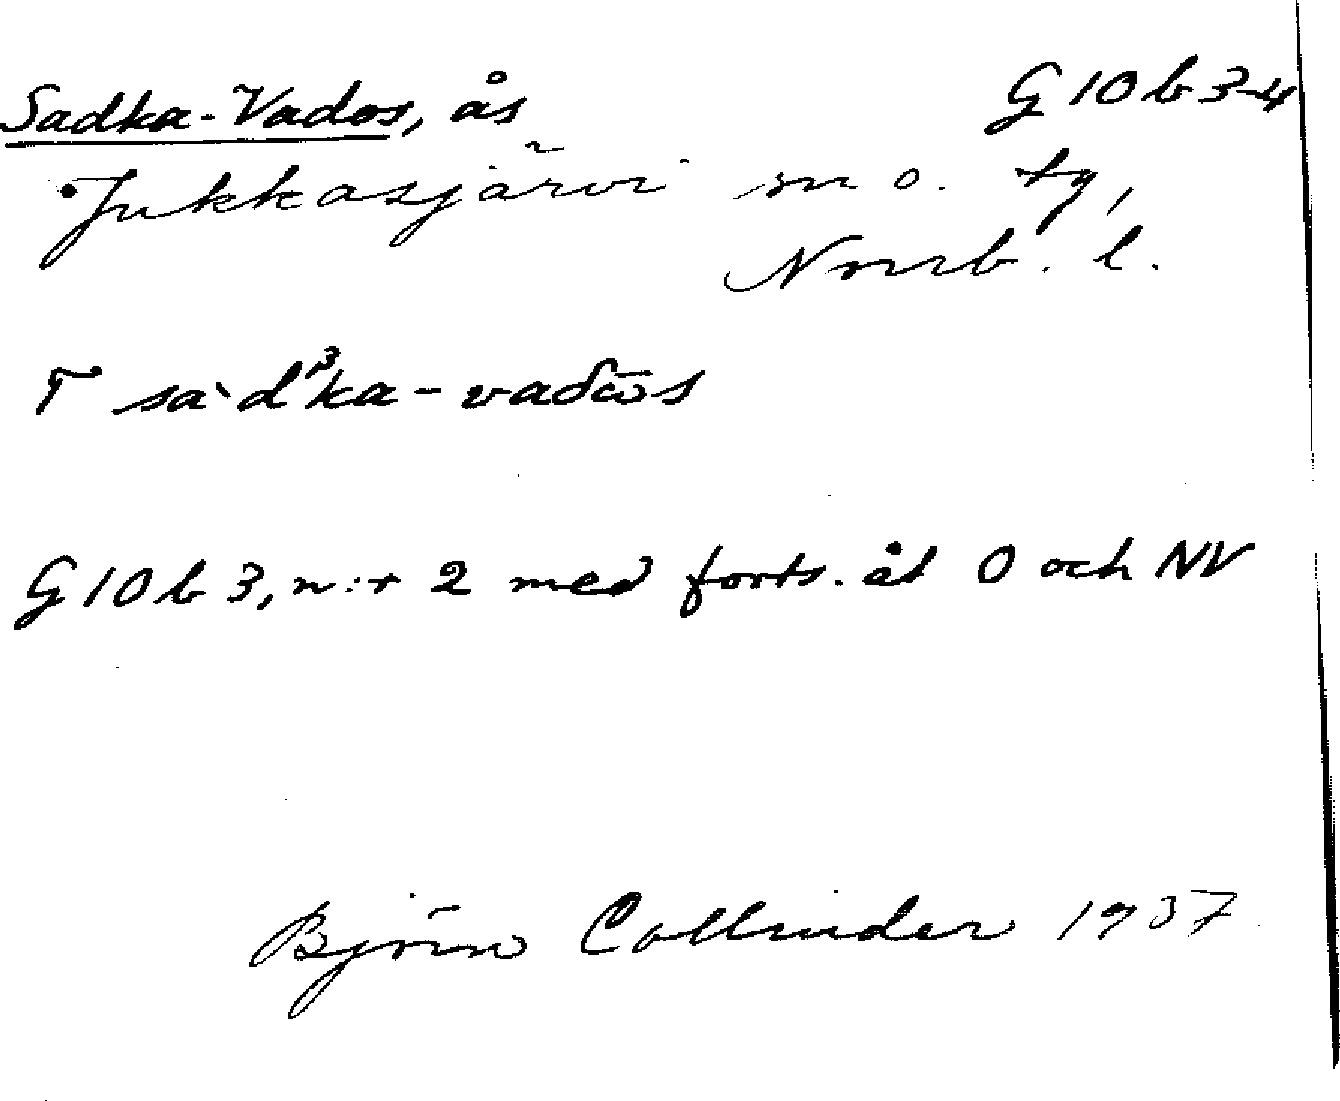 Sadka-Vados, ås G 10 b 3-4
Jukkasjärvi sn o. tg,
Norrb. l.
T sa`dᵌka-vaðōs
G 10 b 3, n:r 2 med forts. åt O och NV
Björn Collinder 1937